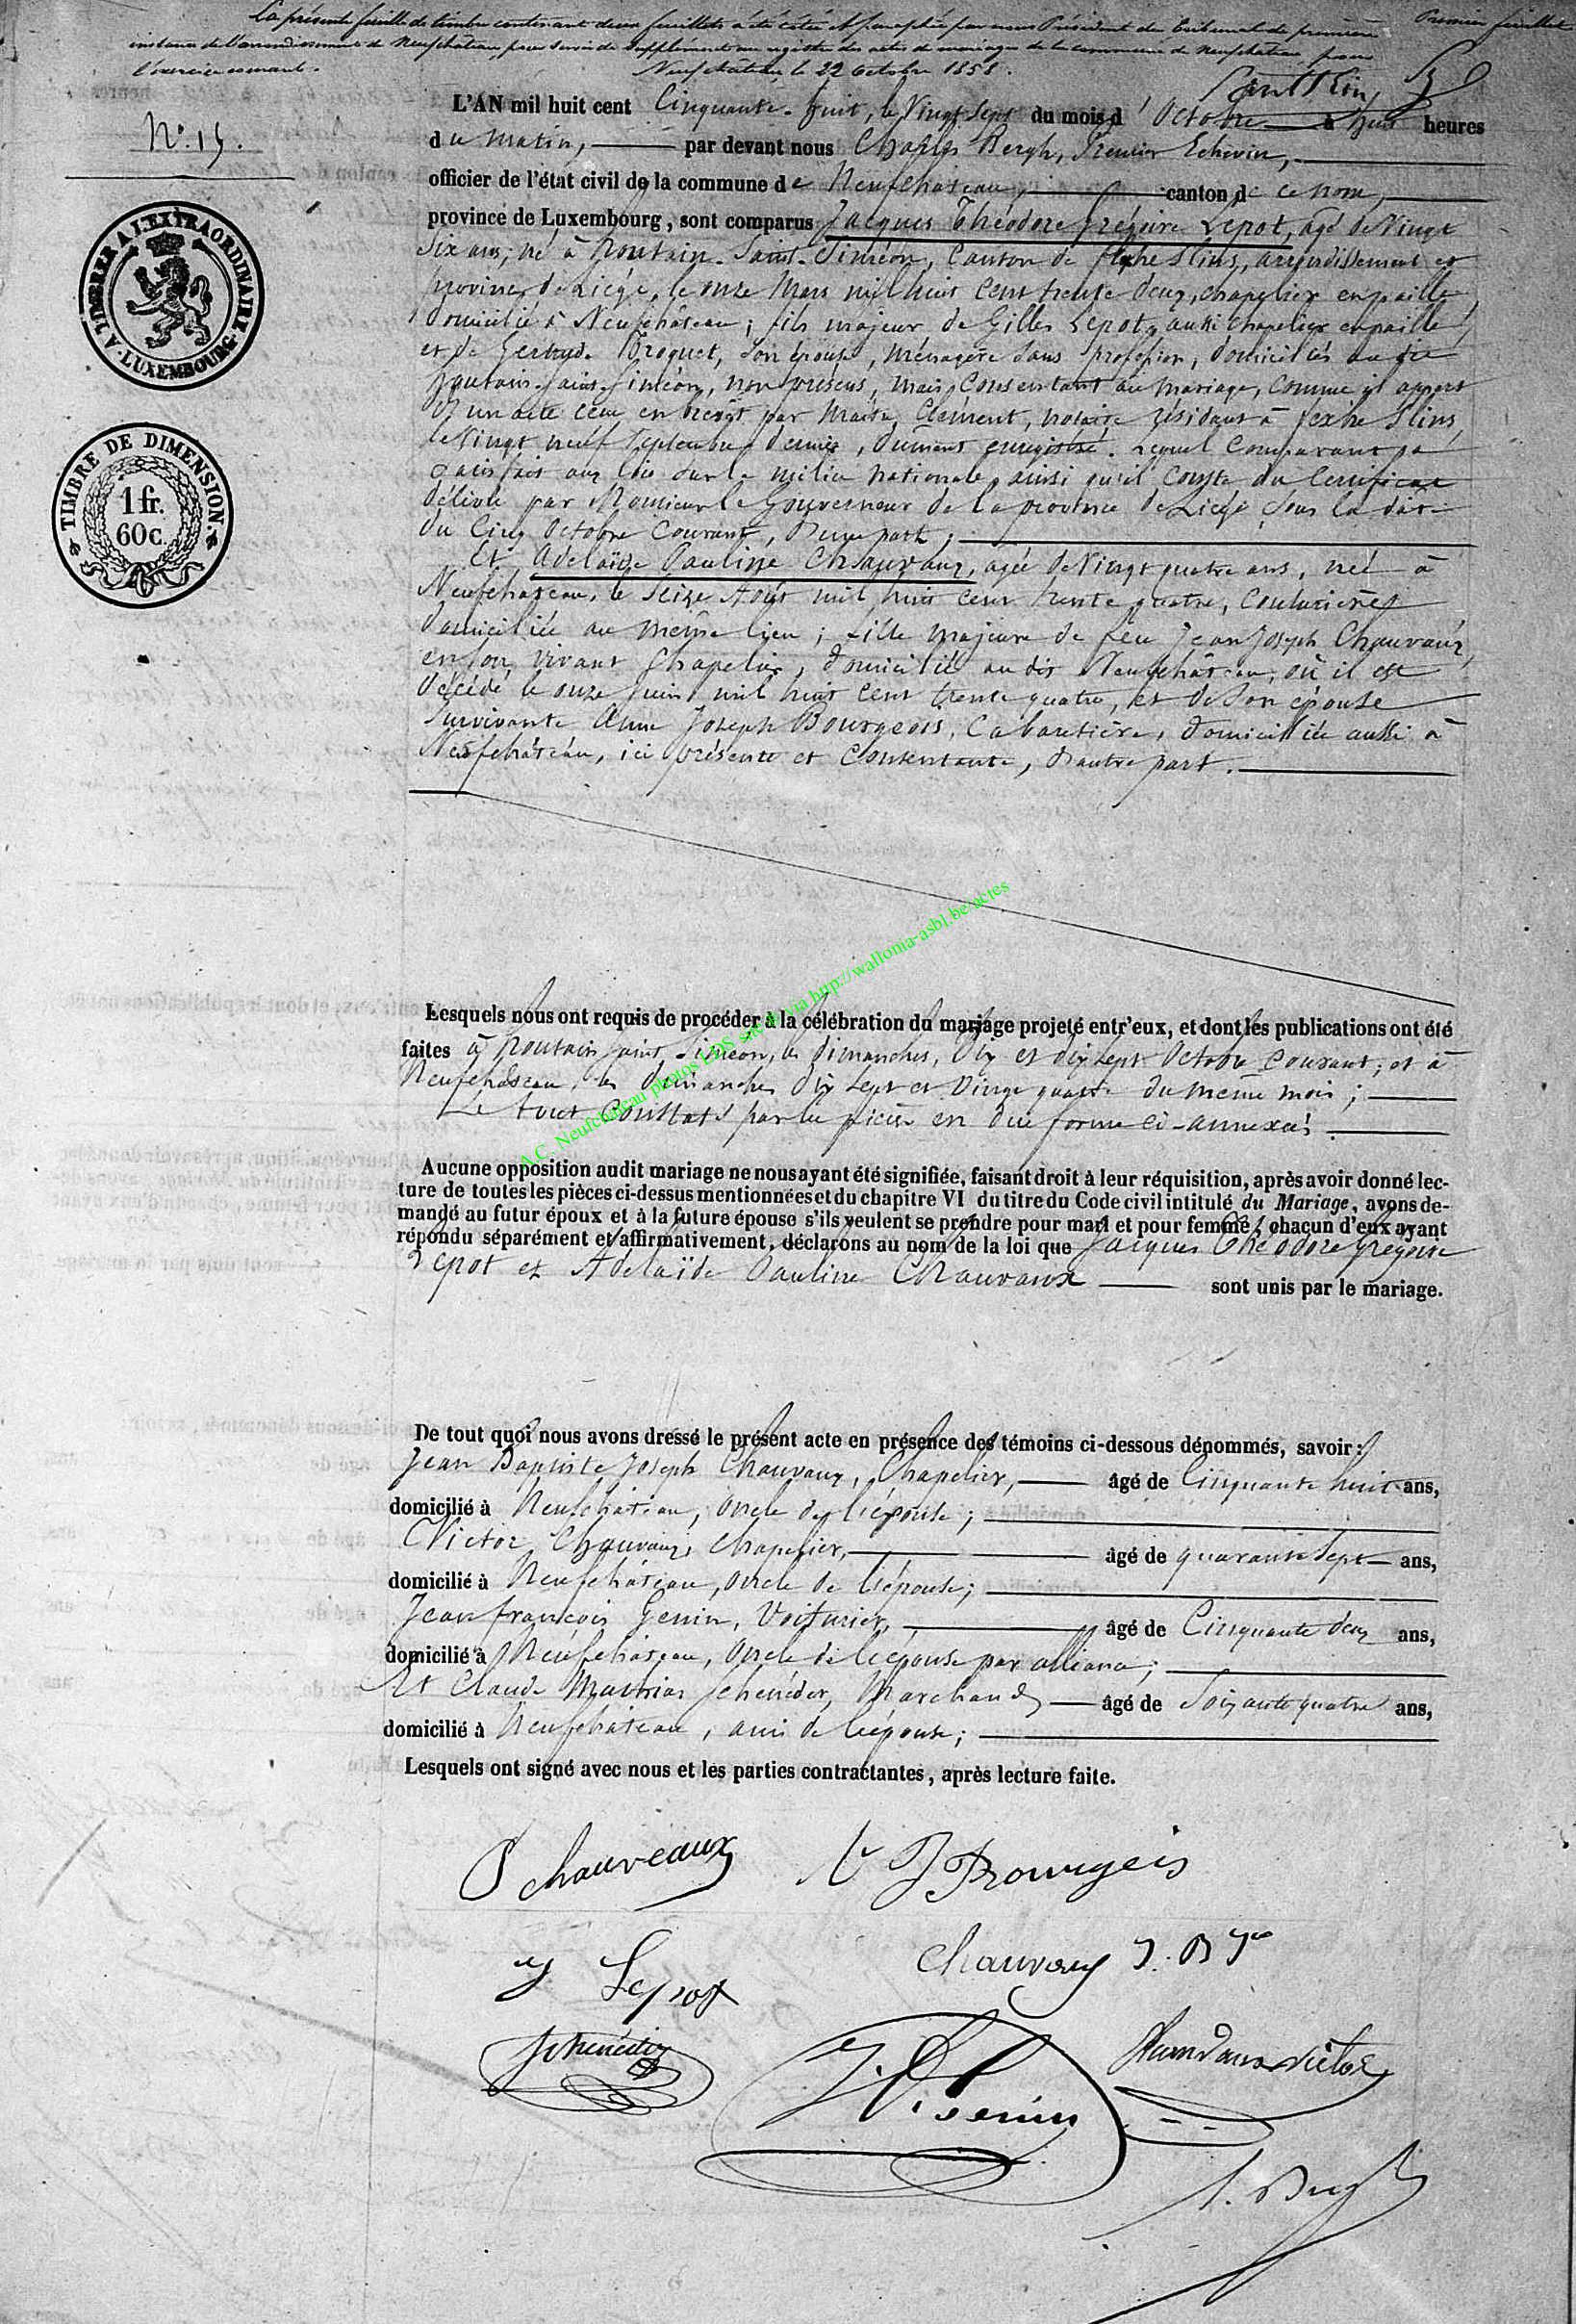 La présente feuille de timbre contenant deux feuillets a été cotée et paraphée par nous Président du Tribunal de première
Premier feuillet
instance de l'arrondissement de Neufchâteau, pour servir de Supplément au registre des actes de mariages de la commune de Neufchâteau, pour
l'exercice courant. Neufchâteau le 22 Octobre 1858.
L'AN mil huit cent Cinquante-huit, le Vingt Sept du mois d'Octobre à huit heures
N° 15.
du matin, par devant nous Charles Bergh, Premier Echevin,
officier de l'état civil de la commune de Neufchateau, canton de ce nom,
province de Luxembourg, sont comparus Jacques Théodore Grégoire Lepot, agé de Vingt
Six ans, né à houtain-Saint-Siméon, Canton de fexhe Slins, arrondissement et
province de Liège, le onze Mars mil huit Cent trente deux, chapelier en paille,
domicilié à Neufchâteau; fils majeur de Gilles Lepot, aussi chapelier en paille,
et de Gertrude Broquet, Son épouse, ménagère Sans profession, domiciliés au dit
houtain-Saint-Siméon, non présens, mais Consentant au mariage, Comme il appert
d'un acte reçu en brevet par Maitre Clément, notaire résidant à fexhe Slins,
le Vingt neuf Septembre dernier, dûment enregistré. Lequel Comparant a
Satisfait aux lois Sur la milice nationale, ainsi qu'il Conste du Certificat
délivré par Monsieur le Gouverneur de la province de Liège Sous la date
du Cinq Octobre Courant, D'une part;
Et Adelaïde Pauline Chauvaux, agée de Vingt quatre ans, née à
Neufchâteau, le Seize Août mil huit cent trente quatre, Couturière,
domiciliée au même lieu; fille majeure de feu Jean Joseph Chauvaux,
en Son vivant Chapelier, domicilié au dit Neufchâteau, où il est
décédé le onze Juin mil huit Cent trente quatre, et de Son épouse
Survivante Anne Joseph Bourgeois, Cabaretière, domiciliée aussi à
Neufchâteau, ici présente et Consentante, d'autre part.
Lesquels nous ont requis de procéder à la célébration du mariage projeté entr'eux, et dont les publications ont été
faites à houtain Saint Siméon, les dimanches, Dix et dix sept Octobre Courant; et à
Neufchâteau, les dimanches dix Sept et Vingt quatre du même mois;
Le tout Constaté par les pièces en due forme ci-annexées
Aucune opposition audit mariage ne nous ayant été signifiée, faisant droit à leur réquisition, après avoir donné lec-
ture de toutes les pièces ci-dessus mentionnées et du chapitre VI du titre du Code civil intitulé du Mariage, avons de-
mandé au futur époux et à la future épouse s'ils veulent se prendre pour mari et pour femme; chacun d'eux ayant
répondu séparément et affirmativement, déclarons au nom de la loi que Jacques Théodore Grégoire
Lepot et Adelaïde Pauline Chauvaux sont unis par le mariage.
De tout quoi nous avons dressé le présent acte en présence des témoins ci-dessous dénommés, savoir:
Jean Baptiste Joseph Chauvaux, Chapelier, âgé de Cinquante huit ans,
domicilié à Neufchâteau, oncle de l'épouse;
Victor Chauvaux, Chapelier, âgé de quarante Sept ans,
domicilié à Neufchâteau, oncle de l'épouse;
Jean françois Genin, Voiturier, âgé de Cinquante deux ans,
domicilié à Neufchâteau, oncle de l'épouse par alliance;
Et Claude Mathias Schenéder, Marchand, âgé de Soixante quatre ans,
domicilié à Neufchâteau, ami de l'épouse;
Lesquels ont signé avec nous et les parties contractantes, après lecture faite.
P Chauveaux
J Bourgeis
J Lepot
Chauvaux J. B Jph
Chauvaux Victor
J. F. Genin
C. Bergh
A TIMBRER A L'EXTRAORDINAIRE · LUXEMBOURG ·
TIMBRE DE DIMENSION.
1 fr.
60c.
A.C. Neufchâteau photos LDS site via http://wallonia-asbl.be/actes